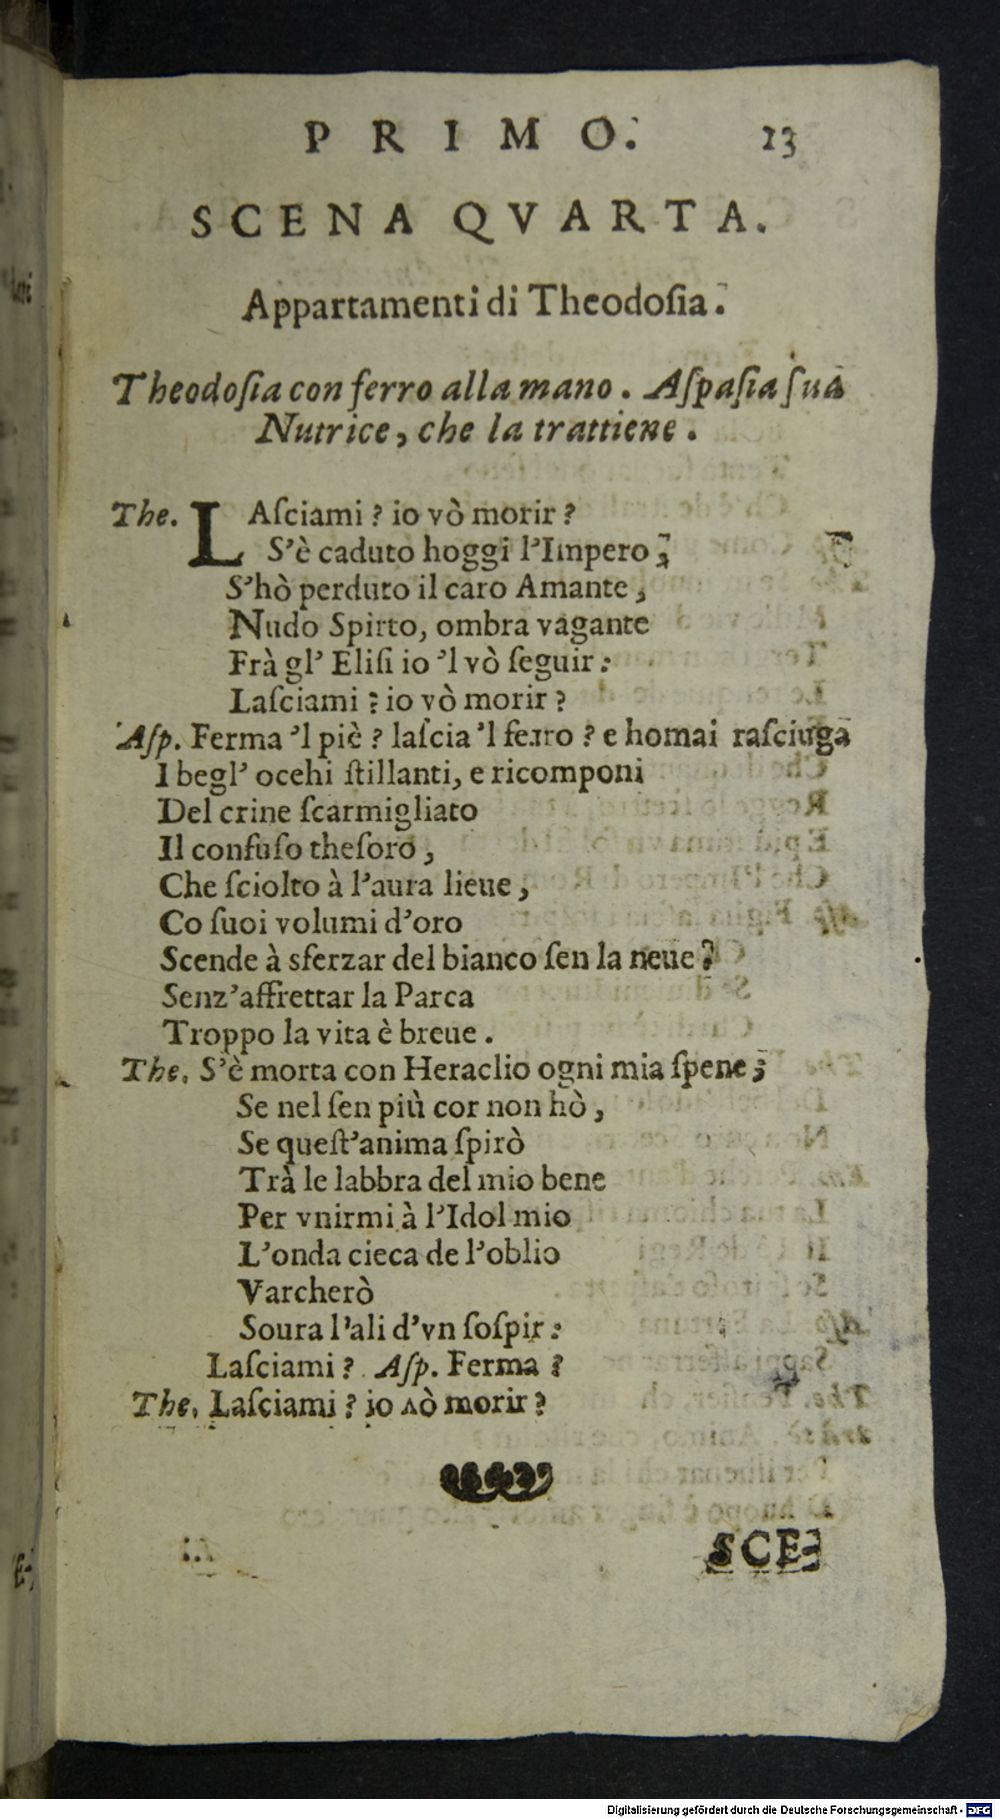 PRIMO. 13
SCENA QVARTA.
Appartamenti di Theodoſia.
Theodoſia con ferro alla mano. Aſpaſia ſua
Nutrice, che la trattiene.
The. LAſciami? io vò morir?
S'è caduto hoggi l'Impero;
S'hò perduto il caro Amante,
Nudo Spirto, ombra vagante
Frà gl' Eliſi io 'l vò ſeguir:
Laſciami? io vò morir?
Aſp. Ferma 'l piè? laſcia 'l ferro? e homai raſciuga
I begl' ocehi ſtillanti, e ricomponi
Del crine ſcarmigliato
Il confuſo theſoro,
Che ſciolto à l'aura lieue,
Co ſuoi volumi d'oro
Scende à sferzar del bianco ſen la neue?
Senz'affrettar la Parca
Troppo la vita è breue.
The. S'è morta con Heraclio ogni mia ſpene;
Se nel ſen più cor non hò,
Se queſt'anima ſpirò
Trà le labbra del mio bene
Per vnirmi à l'Idol mio
L'onda cieca de l'oblio
Varcherò
Soura l'ali d'vn ſoſpir:
Laſciami? Aſp. Ferma?
The. Laſciami? io vò morir?
SCE-
Digitalisierung gefördert durch die Deutsche Forschungsgemeinschaft - DFG